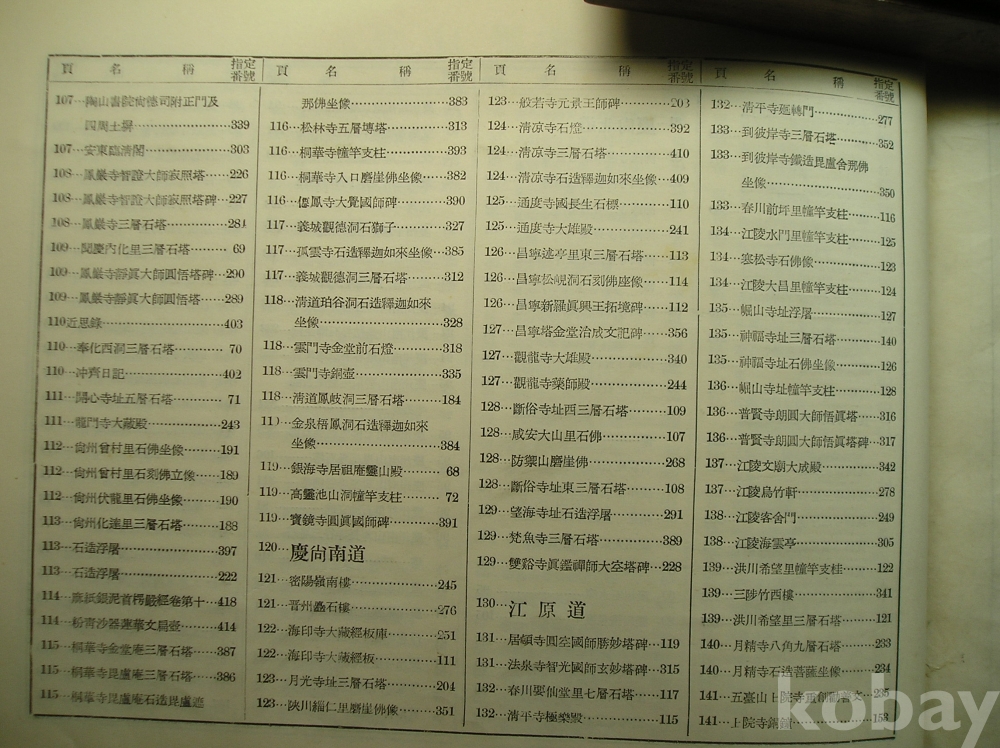 頁 名 稱 指定番號
107…陶山書院尙德司附正門及
四周土塀…339
107…安東臨淸閣…303
108…鳳巖寺智證大師寂照塔…226
108…鳳巖寺智證大師寂照塔碑…227
108…鳳巖寺三層石塔…284
109…聞慶內化里三層石塔…69
109…鳳巖寺靜眞大師圓悟塔碑…290
109…鳳巖寺靜眞大師圓悟塔…289
110近思錄…403
110…奉化西洞三層石塔…70
110…冲齊日記…402
111…開心寺址五層石塔…71
111…龍門寺大藏殿…243
112…尙州曾村里石佛坐像…191
112…尙州曾村里石刻佛立像…189
112…尙州伏龍里石佛坐像…190
113…尙州化達里三層石塔…188
113…石造浮屠…397
113…石造浮屠…222
114…麻紙銀泥首楞嚴經卷第十…418
114…粉靑沙器蓮華文扁壺…414
115…桐華寺金堂庵三層石塔…387
115…桐華寺毘盧庵三層石塔…386
115…桐華寺毘盧庵石造毘盧遮
頁 名 稱 指定番號
那佛坐像…383
116…松林寺五層塼塔…313
116…桐華寺幢竿支柱…393
116…桐華寺入口磨崖佛坐像…382
116…僊鳳寺大覺國師碑…390
117…義城觀德洞石獅子…327
117…孤雲寺石造釋迦如來坐像…385
117…義城觀德洞三層石塔…312
118…淸道珀谷洞石造釋迦如來
坐像…328
118…雲門寺金堂前石燈…318
118…雲門寺銅壺…335
118…淸道鳳岐洞三層石塔…184
金泉梧鳳洞石造釋迦如來
坐像…384
119…銀海寺居祖庵靈山殿…68
119…高靈池山洞幢竿支柱…72
119…寶鏡寺圓眞國師碑…391
120…慶尙南道
121…密陽嶺南樓…245
121…晋州矗石樓…276
122…海印寺大藏經板庫…251
122…海印寺大藏經板…111
123…月光寺址三層石塔…204
123…陜川緇仁里磨崖佛像…351
頁 名 稱 指定番號
123…般若寺元景王師碑…203
124…淸凉寺石燈…392
124…淸凉寺三層石塔…410
124…淸凉寺石造釋迦如來坐像…409
125…通度寺國長生石標…110
125…通度寺大雄殿…241
126…昌寧述亭里東三層石塔…113
126…昌寧松峴洞石刻佛座像…114
126…昌寧新羅眞興王拓境碑…112
127…昌寧塔金堂治成文記碑…356
127…觀龍寺大雄殿…340
127…觀龍寺藥師殿…244
128…斷俗寺址西三層石塔…109
128…咸安大山里石佛…107
128…防禦山磨崖佛…268
128…斷俗寺址東三層石塔…108
129…望海寺址石造浮屠…291
129…梵魚寺三層石塔…389
129…雙谿寺眞鑑禪師大空塔碑…228
130…江原道
131…居頓寺圓空國師勝妙塔碑…119
131…法泉寺智光國師玄妙塔碑…315
132…春川要仙堂里七層石塔…117
132…淸平寺極樂殿…115
頁 名 稱 指定番號
132…淸平寺廻轉門…277
133…到彼岸寺三層石塔…352
133…到彼岸寺鐵造毘盧舍那佛
坐像…350
133…春川前坪里幢竿支柱…116
134…江陵水門里幢竿支柱…125
134…寒松寺石佛像…123
134…江陵大昌里幢竿支柱…124
135…崛山寺址浮屠…127
135…神福寺址三層石塔…140
135…神福寺址石佛坐像…126
136…崛山寺址幢竿支柱…128
136…普賢寺朗圓大師悟眞塔…316
136…普賢寺朗圓大師悟眞塔碑…317
137…江陵文廟大成殿…342
137…江陵烏竹軒…278
138…江陵客舍門…249
138…江陵海雲亭…305
139…洪川希望里幢竿支柱…122
139…三陟竹西樓…341
139…洪川希望里三層石塔…121
140…月精寺八角九層石塔…233
140…月精寺石造菩薩坐像…234
141…五臺山上院寺重創勸善文…235
141…上院寺銅鐘…153
kobay